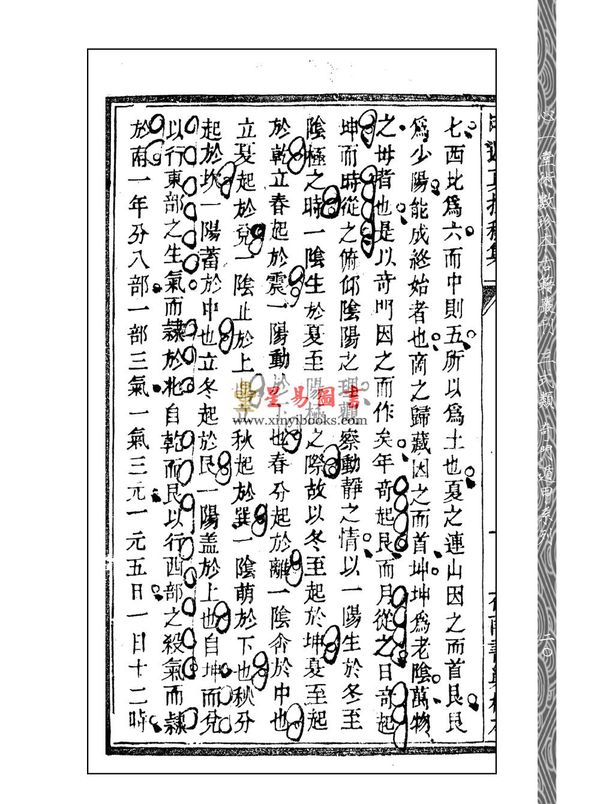 七西北爲六而中則五所以爲土也夏之連山因之而首艮艮
爲少陽能成終始者也商之歸藏因之而首坤坤爲老陰萬物
之母者也是以奇門因之而作矣年奇起艮而月從之日奇起
坤而時從之俯仰陰陽之理顯察動靜之情以一陽生於冬至
陰極之時一陰生於夏至陽極之際故以冬至起於坤夏至起
於乾立春起於震一陽動於下也春分起於離一陰侖於中也
立夏起於兌一陰止於上也立秋起於巽一陰萌於下也秋分
起於坎一陽蓄於中也立冬起於艮一陽盖於上也自坤而兌
以行東部之生氣而隸於北自乾而艮以行西部之殺氣而隸
於南一年分八部一部三氣一氣三元一元五日一日十二時
星易圖書
www.xinyibooks.com
心一堂術數珍本古籍叢刊 三式類 奇門遁甲系列
二〇